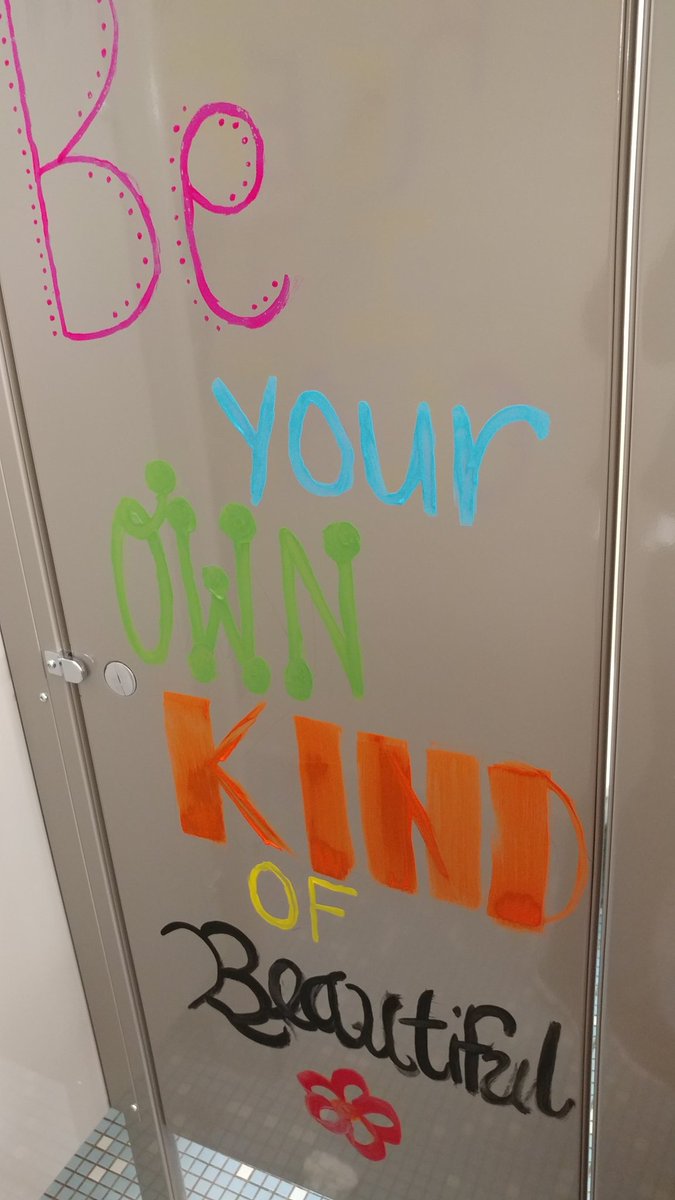 Be
your
OWN
KIND
OF
Beautiful